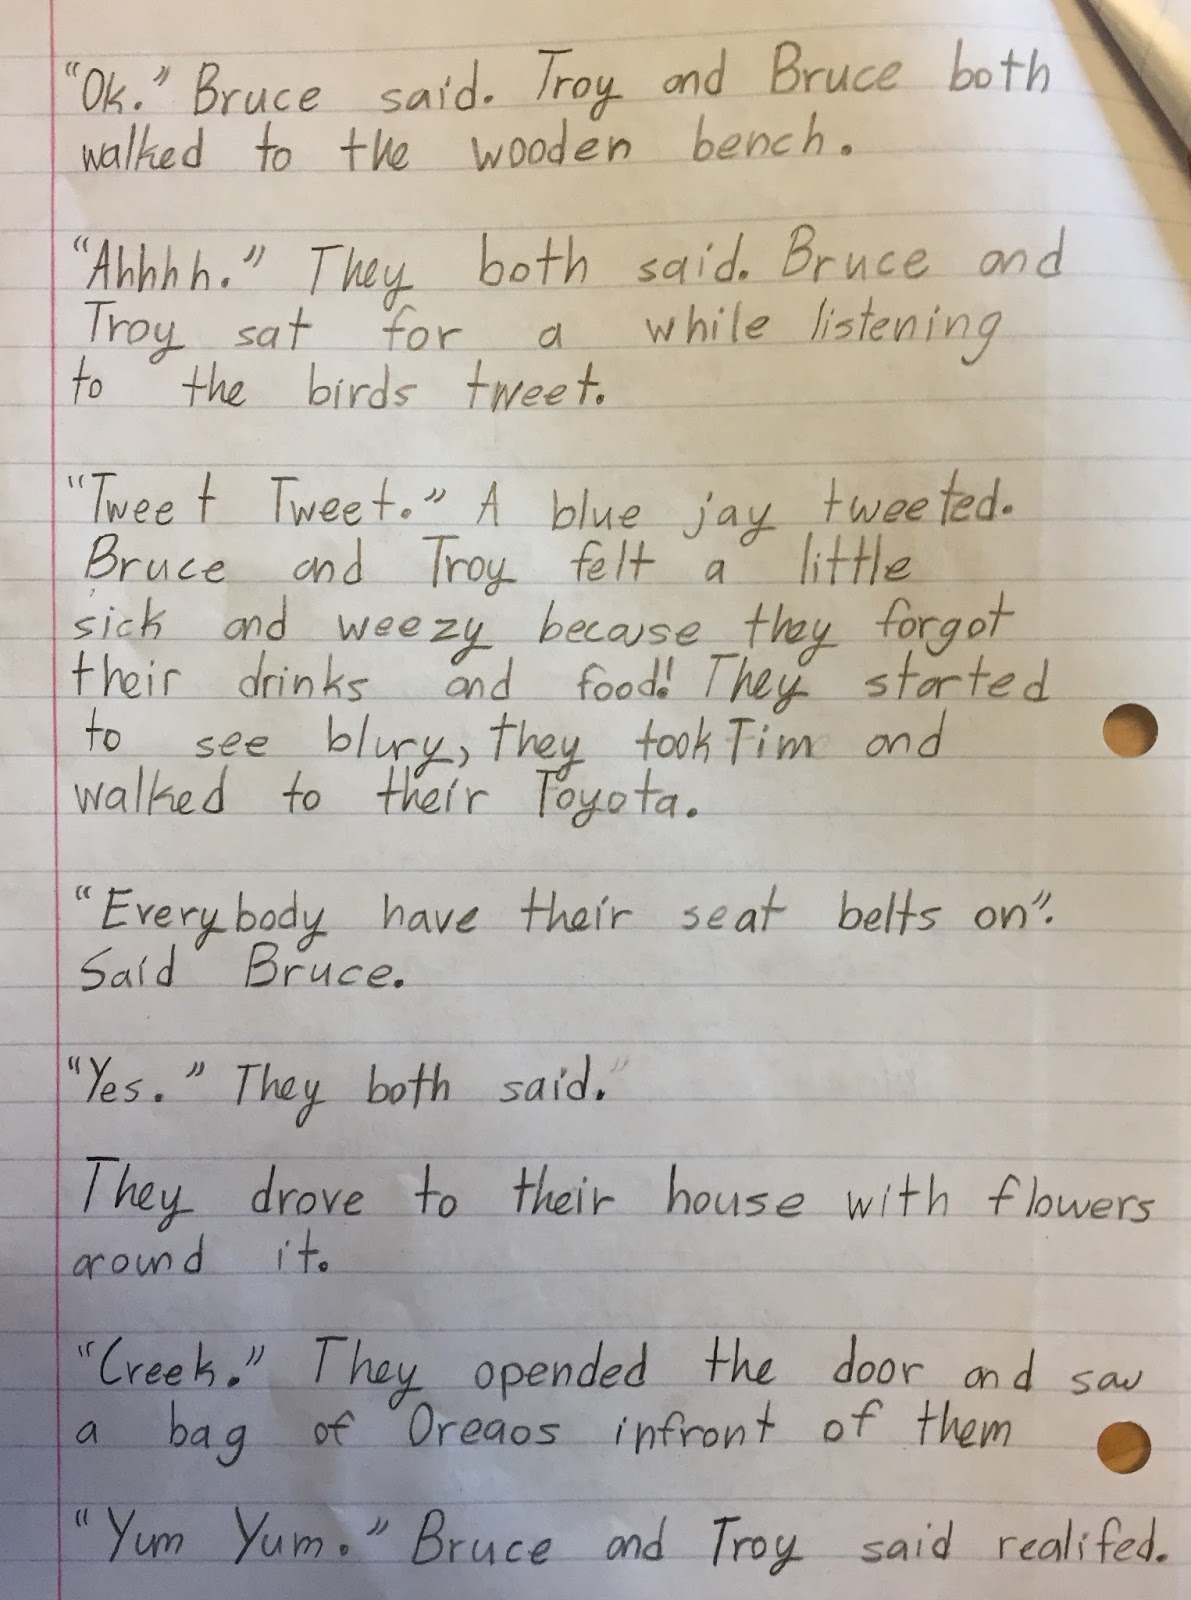 "Ok." Bruce said. Troy and Bruce both
walked to the wooden bench.
"Ahhhh." They both said. Bruce and
Troy sat for a while listening
to the birds tweet.
"Tweet Tweet." A blue jay tweeted.
Bruce and Troy felt a little
sick and weezy because they forgot
their drinks and food! They started
to see blury, they took Tim and
walked to their Toyota.
"Everybody have their seat belts on".
Said Bruce.
"Yes." They both said."
They drove to their house with flowers
around it.
"Creek." They opended the door and saw
a bag of Oreaos infront of them
"Yum Yum." Bruce and Troy said realifed.